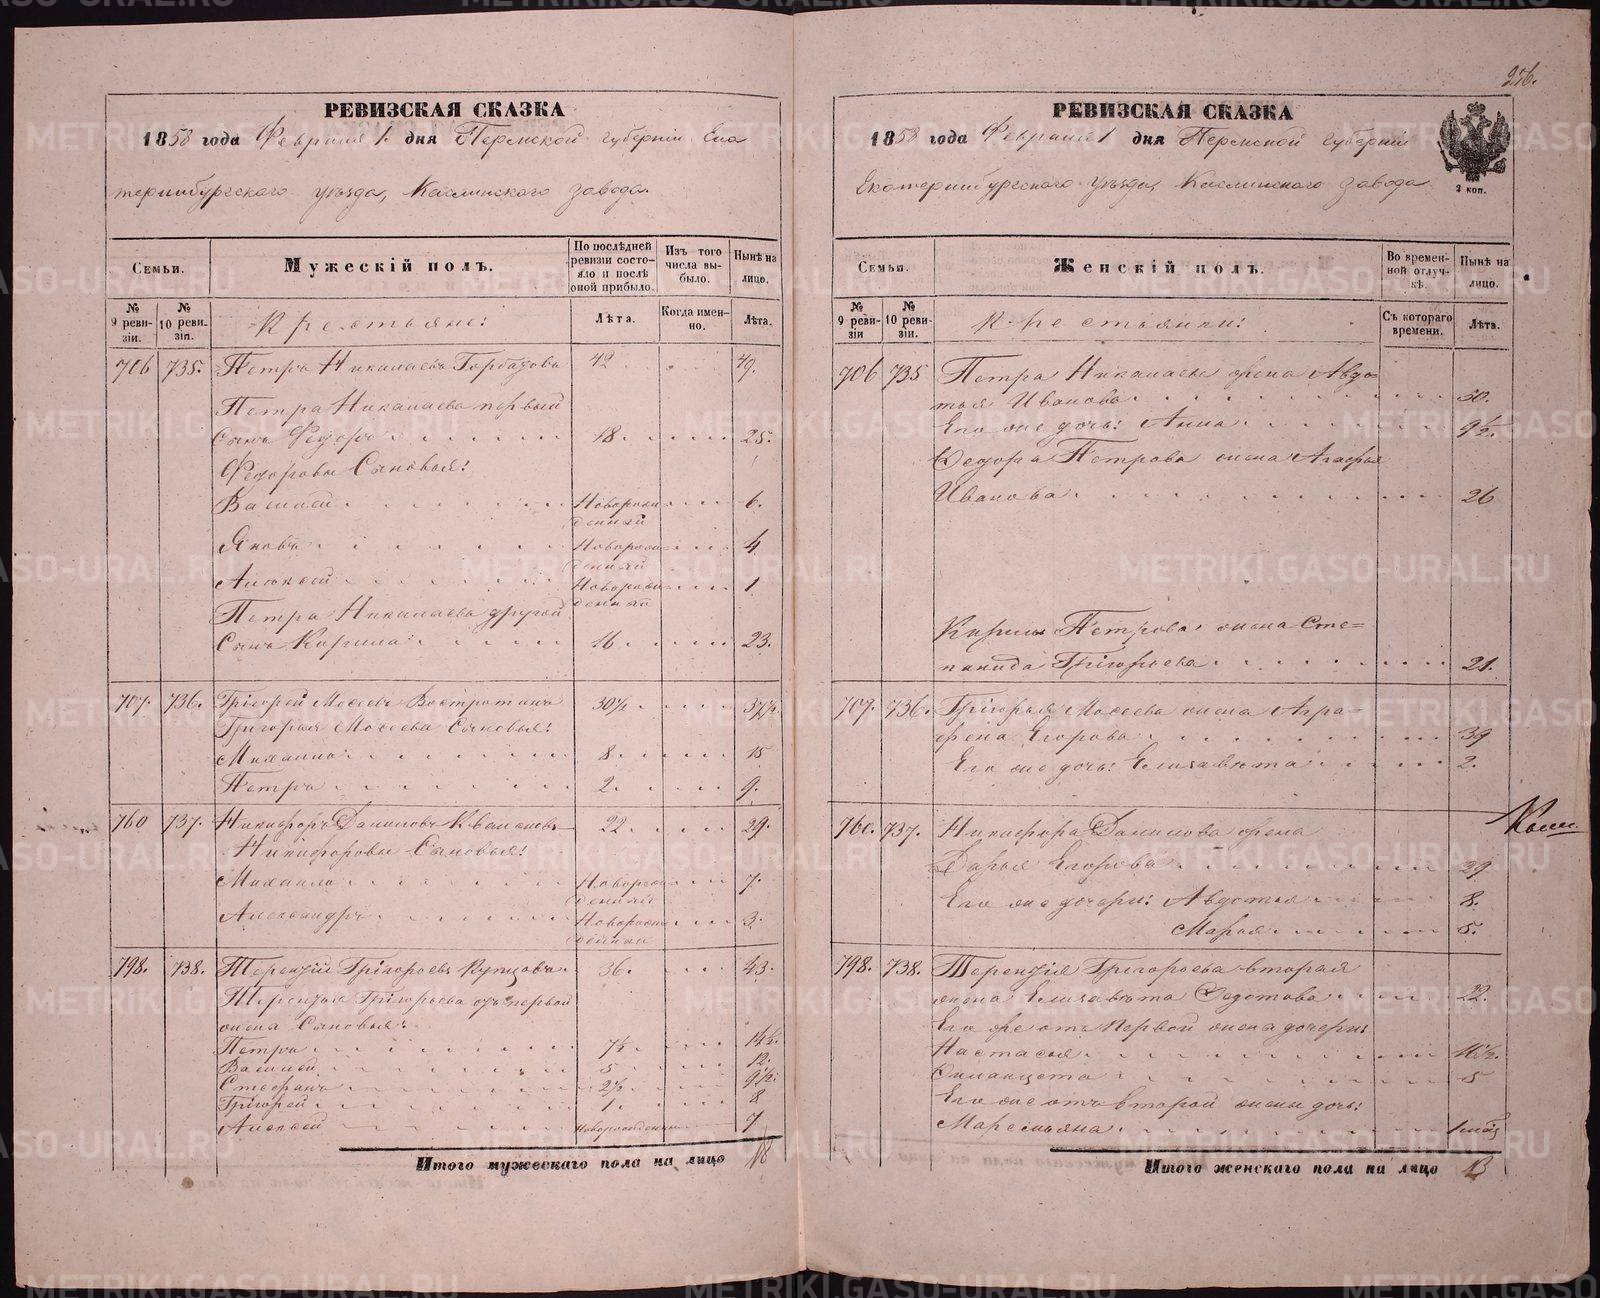 РЕВИЗСКАЯ СКАЗКА
1858 года Февраля 1. дня Пермской губернiи Ека
теринбургскаго уѣзда, Каслинскаго завода.
Семьи.
Мужескiй полъ.
По послѣдней ревизiи состояло и послѣ оной прибыло.
Изъ того числа выбыло.
Нынѣ на лицо.
№ 9 ревизiи.
№ 10 ревизiи.
Крестьяне:
Лѣта.
Когда именно.
Лѣта.
706 735. Петръ Никалаевъ 42 49.
Петра Никалаева первый
Сынъ Федоръ 18 25.
Федоровы Сыновья:
Василей Новорожденный 6.
Яковъ Новорожденный 4
Алексей Новорожденный 1
Петра Никалаева другой
Сынъ Кирила 16 23.
707. 736. Григорей Мосеевъ Востротинъ 30½ 37½
Григорья Мосеева Сыновья:
Михаило 8 15
Петръ 2. 9.
760 737. Никифоръ Даниловъ 22 29.
Никифоровы Сыновья:
Михаило Новорожденный 7.
Александръ Новорожденный 3.
798. 738. Терентiй Григорьевъ Купцовъ 36. 43.
Терентья Григорьева отъ первой
жены Сыновья:
Петръ 7½ 14½.
Василей 5 12.
Стефанъ 2½ 9½.
Григорей 1. 8
Алексей Новорожденный 7
Итого мужескаго пола на лицо 18
276.
РЕВИЗСКАЯ СКАЗКА
1858 года Февраля 1 дня Пермской губернiи
Екатеринбургскаго уѣзда, Каслинскаго завода
2 коп.
Семьи.
Женскiй полъ.
Во временной отлучкѣ.
Нынѣ на лицо.
№ 9 ревизiи
№ 10 ревизiи.
Крестьянки:
Съ котораго времени.
Лѣта.
706 735 Петра Никалаева жена Авдо-
тья Иванова 50.
Его же дочь: Анна 9½.
Федора Петрова жена Агафья
Иванова 26
Кирилы Петрова жена Сте=
панида Григорьева 21.
707. 736. Григорья Мосеева жена Агра=
фена Егорова 39
Его же дочь: Елизавѣта 2.
760. 737. Никифора Данилова жена
Дарья Егорова 29
Его же дочери: Авдотья 8.
Марья 5.
798. 738. Терентiя Григорьева вторая
жена Елизавѣта Федотова 22.
Его же отъ первой жены дочери:
Настасья 10½.
5
Его же отъ второй жены дочь:
Маремьяна
Итого женскаго пола на лицо 13
METRIKI.GASO-URAL.RU